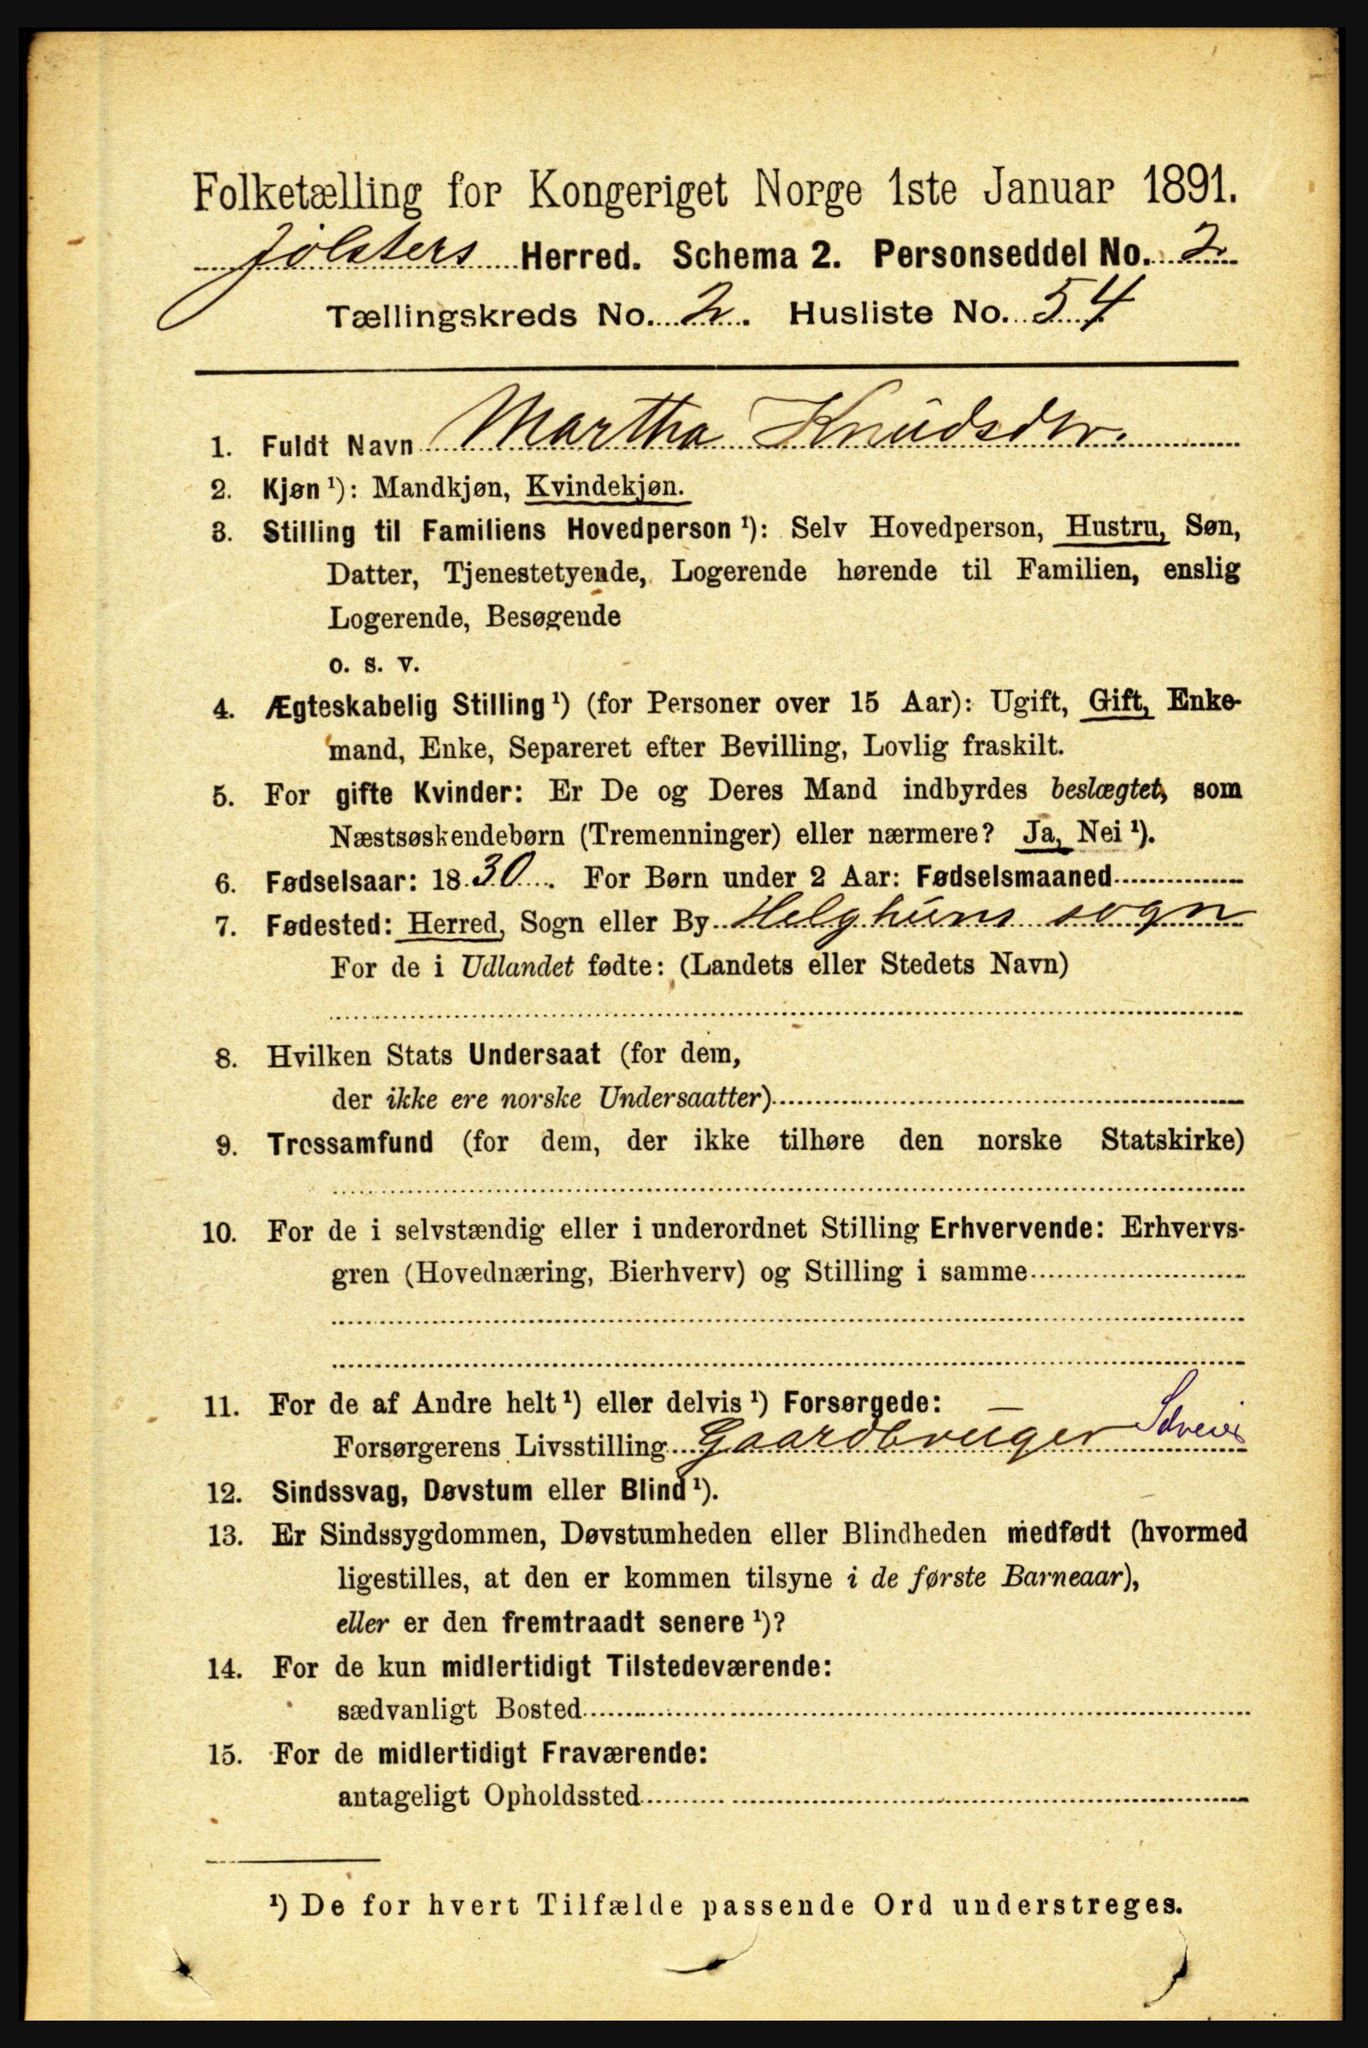 Folketælling for Kongeriget Norge 1ste Januar 1891.
Jølsters Herred. Schema 2. Personseddel No. 2
Tællingskreds No. 2. Husliste No. 54
1. Fuldt Navn Martha Knudsdtr.
2. Kjøn ¹): Mandkjøn, Kvindekjøn.
3. Stilling til Familiens Hovedperson ¹): Selv Hovedperson, Hustru, Søn,
Datter, Tjenestetyende, Logerende hørende til Familien, enslig
Logerende, Besøgende
o. s. v.
4. Ægteskabelig Stilling ¹) (for Personer over 15 Aar): Ugift, Gift, Enke-
mand, Enke, Separeret efter Bevilling, Lovlig fraskilt.
5. For gifte Kvinder: Er De og Deres Mand indbyrdes beslægtet, som
Næstsøskendebørn (Tremenninger) eller nærmere? Ja, Nei ¹).
6. Fødselsaar: 1830. For Børn under 2 Aar: Fødselsmaaned
7. Fødested: Herred, Sogn eller By Helghuns sogn
For de i Udlandet fødte: (Landets eller Stedets Navn)
8. Hvilken Stats Undersaat (for dem,
der ikke ere norske Undersaatter)
9. Trossamfund (for dem, der ikke tilhøre den norske Statskirke)
10. For de i selvstændig eller i underordnet Stilling Erhvervende: Erhvervs-
gren (Hovednæring, Bierhverv) og Stilling i samme
11. For de af Andre helt ¹) eller delvis ¹) Forsørgede:
Forsørgerens Livsstilling Gaardbruger Selveier
12. Sindssvag, Døvstum eller Blind ¹).
13. Er Sindssygdommen, Døvstumheden eller Blindheden medfødt (hvormed
ligestilles, at den er kommen tilsyne i de første Barneaar),
eller er den fremtraadt senere ¹)?
14. For de kun midlertidigt Tilstedeværende:
sædvanligt Bosted
15. For de midlertidigt Fraværende:
antageligt Opholdssted
¹) De for hvert Tilfælde passende Ord understreges.